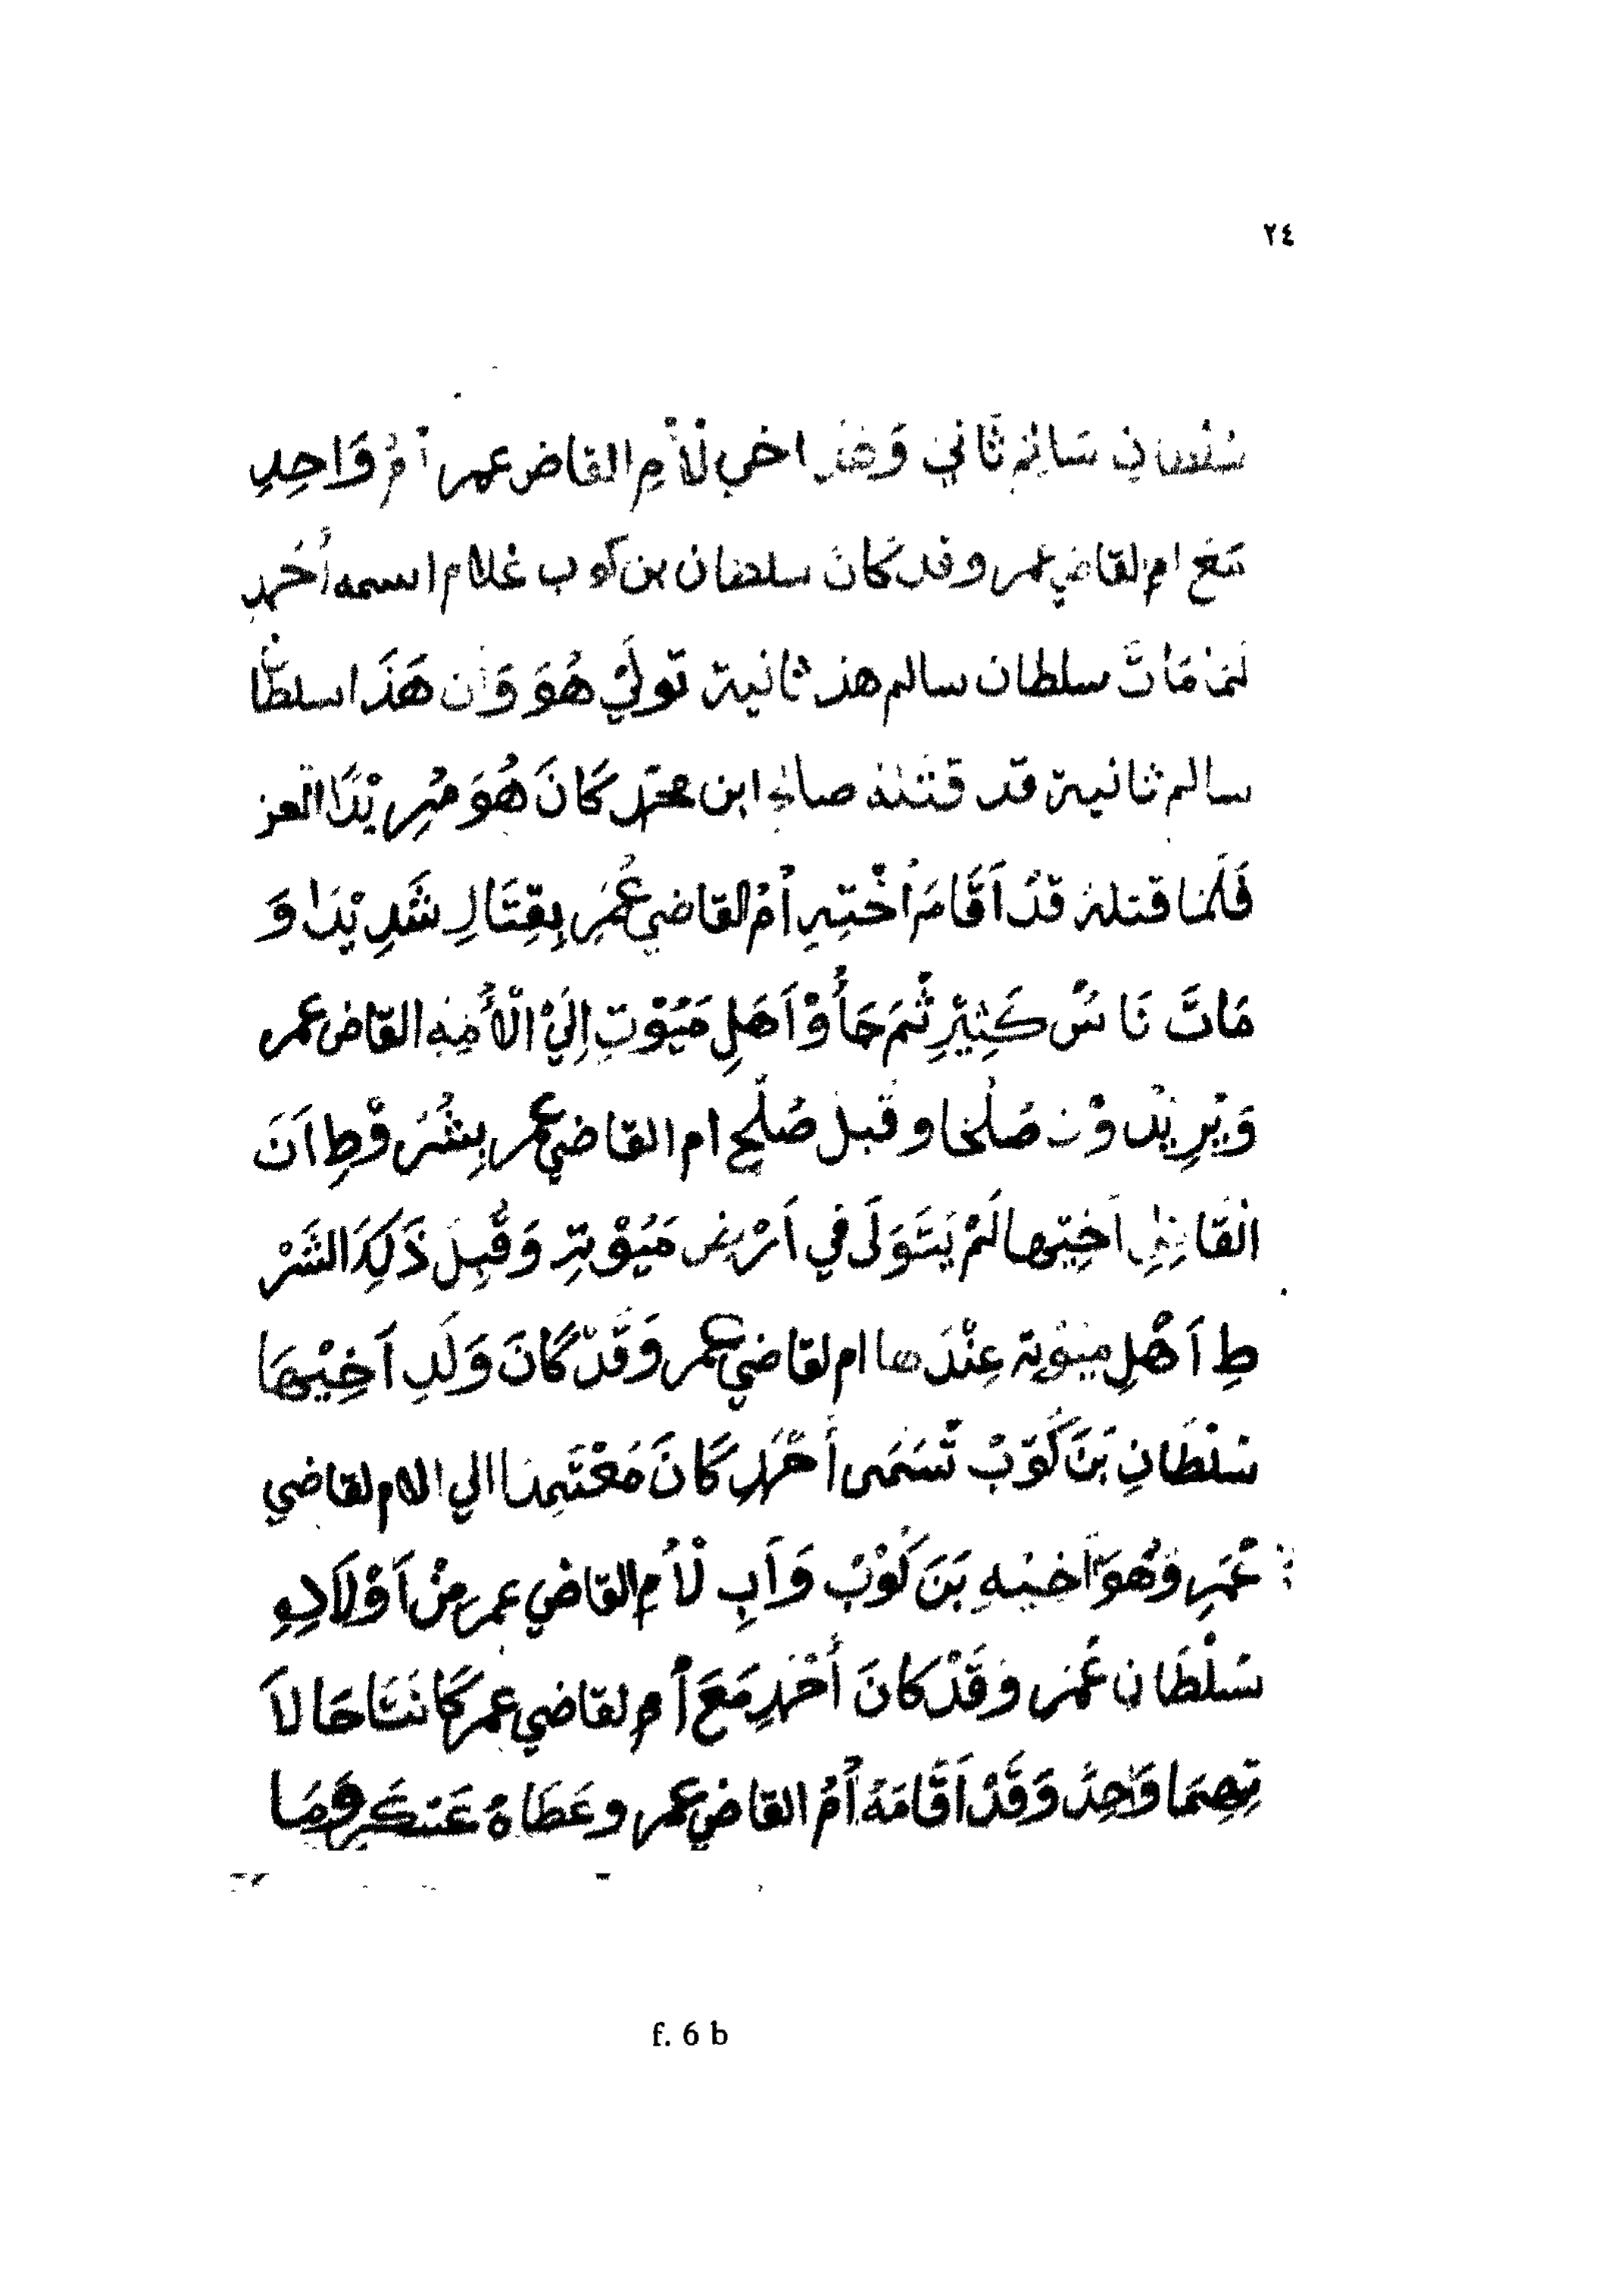 ٢٤
سُلْطَانِ سَالِمْ ثَانِي وَهَذَا اخي لْأُمِ القاض عمر أُمُ وَاحِدِ
مَعَ امِ لقاضي عمر وقد كَانَ سلطان بن كوب غلام اسمه أَحْمد
لَمَا مَاتَ سلطان سالم هذ ثانية تولَيْ هُوَ وَان هَذَا سلطَا
سالم ثانية قد قتله صالح ابن محمّد كَانَ هُوَ مُرِيْدًا العز
فَلَمَا قتلهُ قدْ اَقَامَ أُخْتِهِ أمْ القاضي عُمَرِ بِقِتَالِ شَدِيْدَا وَ
مَاتَ نَاسُ كَثِيْرِ ثُمَ جَأُوْ اَهَلِ مَيُوْتِ اِلَيْ الْأُمِهِ القاض عمر
وَيْرِيْدوْن صُلْحَا وقَبلْ صُلْحِ ام القاضي عمر بِشُرَوْطِ اَنَ
الْقَاضِي اَخِيْها لَمْ يَتَوَلَى فِي اَرْض مَيُوْتِ وَقُبِلَ ذَلِكَ الشَرْ
طِ اَهْلِ ميوْتة عِنْدَها ام لقاضي عمر وَقَدْ كَانَ وَلَدِ اَخِيْهَا
سُلْطَانِ بَنَ كُوَبْ تُسَمَى أَحْمَدِ كَانَ مَعْتَمِدَا الي الام لقاضي
عُمَرِ وَهُوَ اَخِيْهِ بَنَ كُوْبْ وَاَبِ لْأُمِ القاضي عمر مِنْ اَوْلَادِهِ
سُلْطَانِ عُمَر وَقَدْ كانَ أَحْمَدِ مَعَ أُمِ لقاضي عمر كَانَتَا حَالَا
تِهِمَا وَاحِدُ وَقَدْ اَقَامَهُ أُمُ القاضي عمر وعَطَاهُ عَسْكَرِ وَمَا
f. 6 b